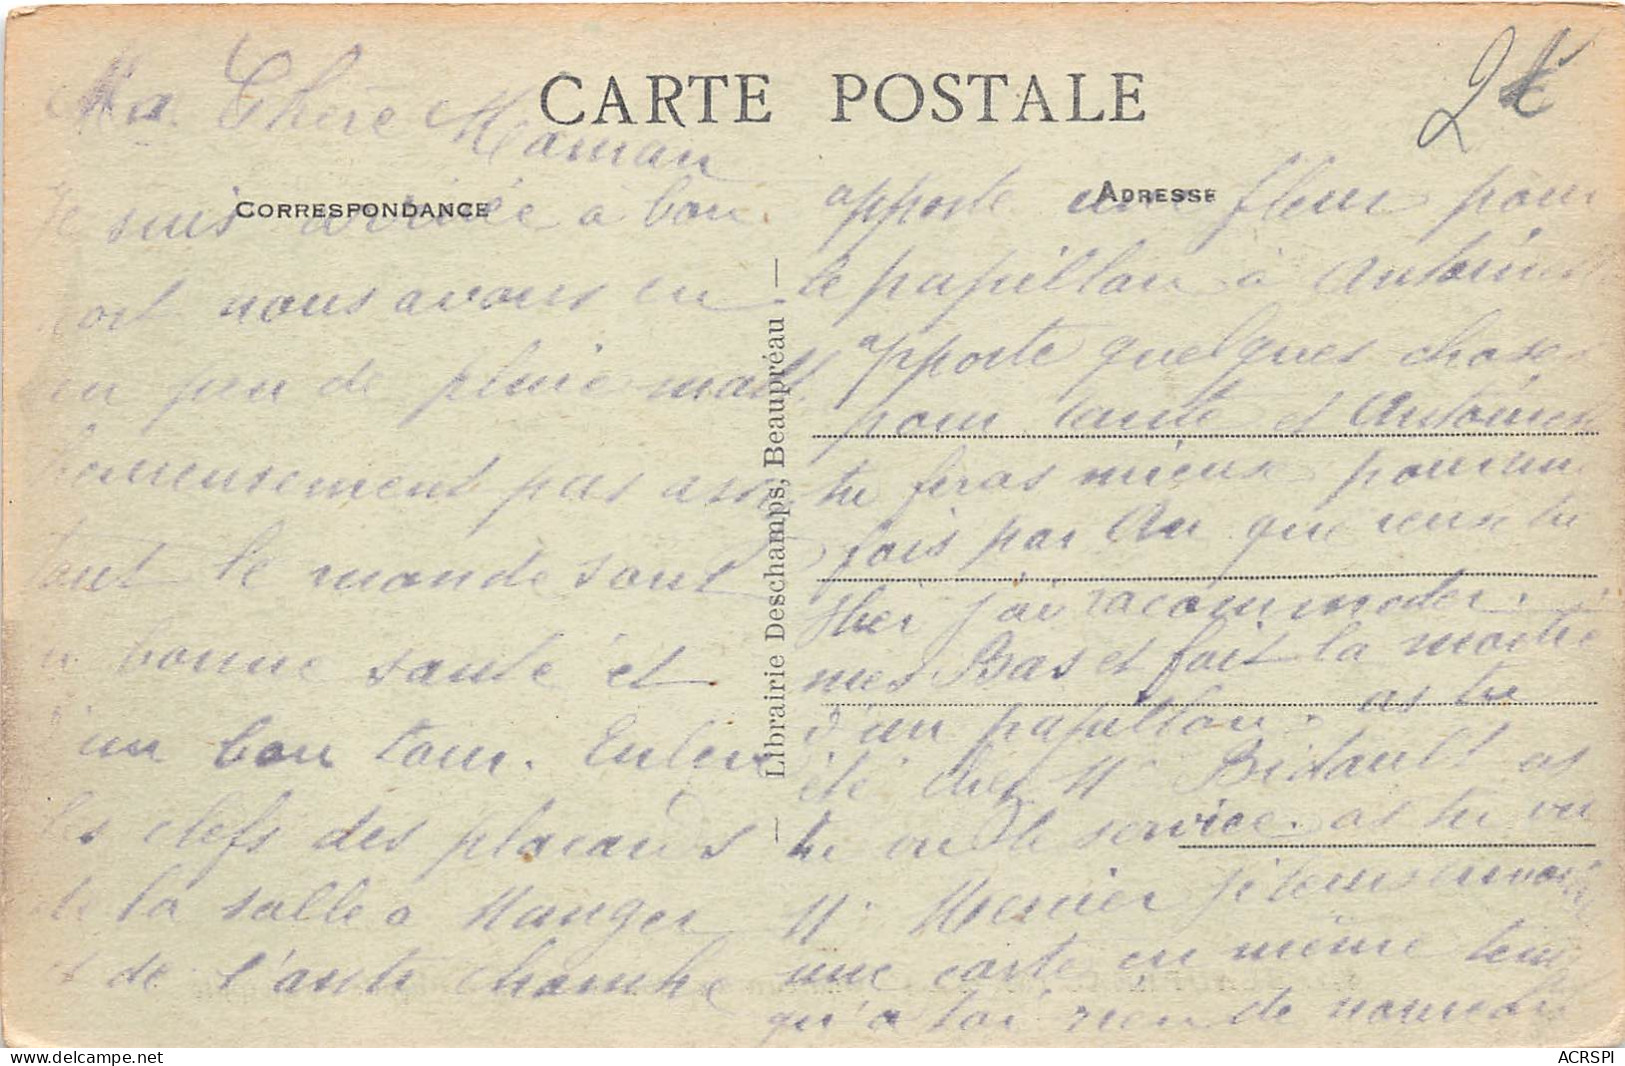 CARTE POSTALE
2€
CORRESPONDANCE
ADRESSE
Librairie Deschamps, Beaupréau
Ma Chère Maman
Je suis arrivée a bon
port nous avons eu
un peu de pluie mal
heureusement pas assez
tout le monde sont
en bonne santé et
d'un bon tour. Enleve
les clefs des placards
de la salle a Manger
et de l'anti chambre
apporte une fleur pour
le papillon à Antoinette
apporte quelques choses
pour tante et Antoinette
tu feras mieux pour un
fois par An que veux tu
Hier j'ai racommoder
mes Bas et fait la moitié
d'un papillon. as tu
été chez Mr Bidault as
tu vu le service. as tu vu
Mr Mercier je leur envoie
une carte en même temps
qu'a toi rien de nouveau
ACRSPI